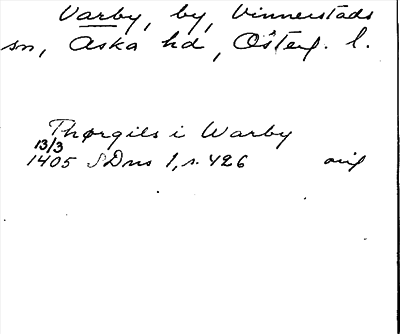 Varby, by, Vinnerstads
sn, Aska hd, Österg. l.
Thørgils i Warby
13/3
1405 SDns 1, s. 426 orig